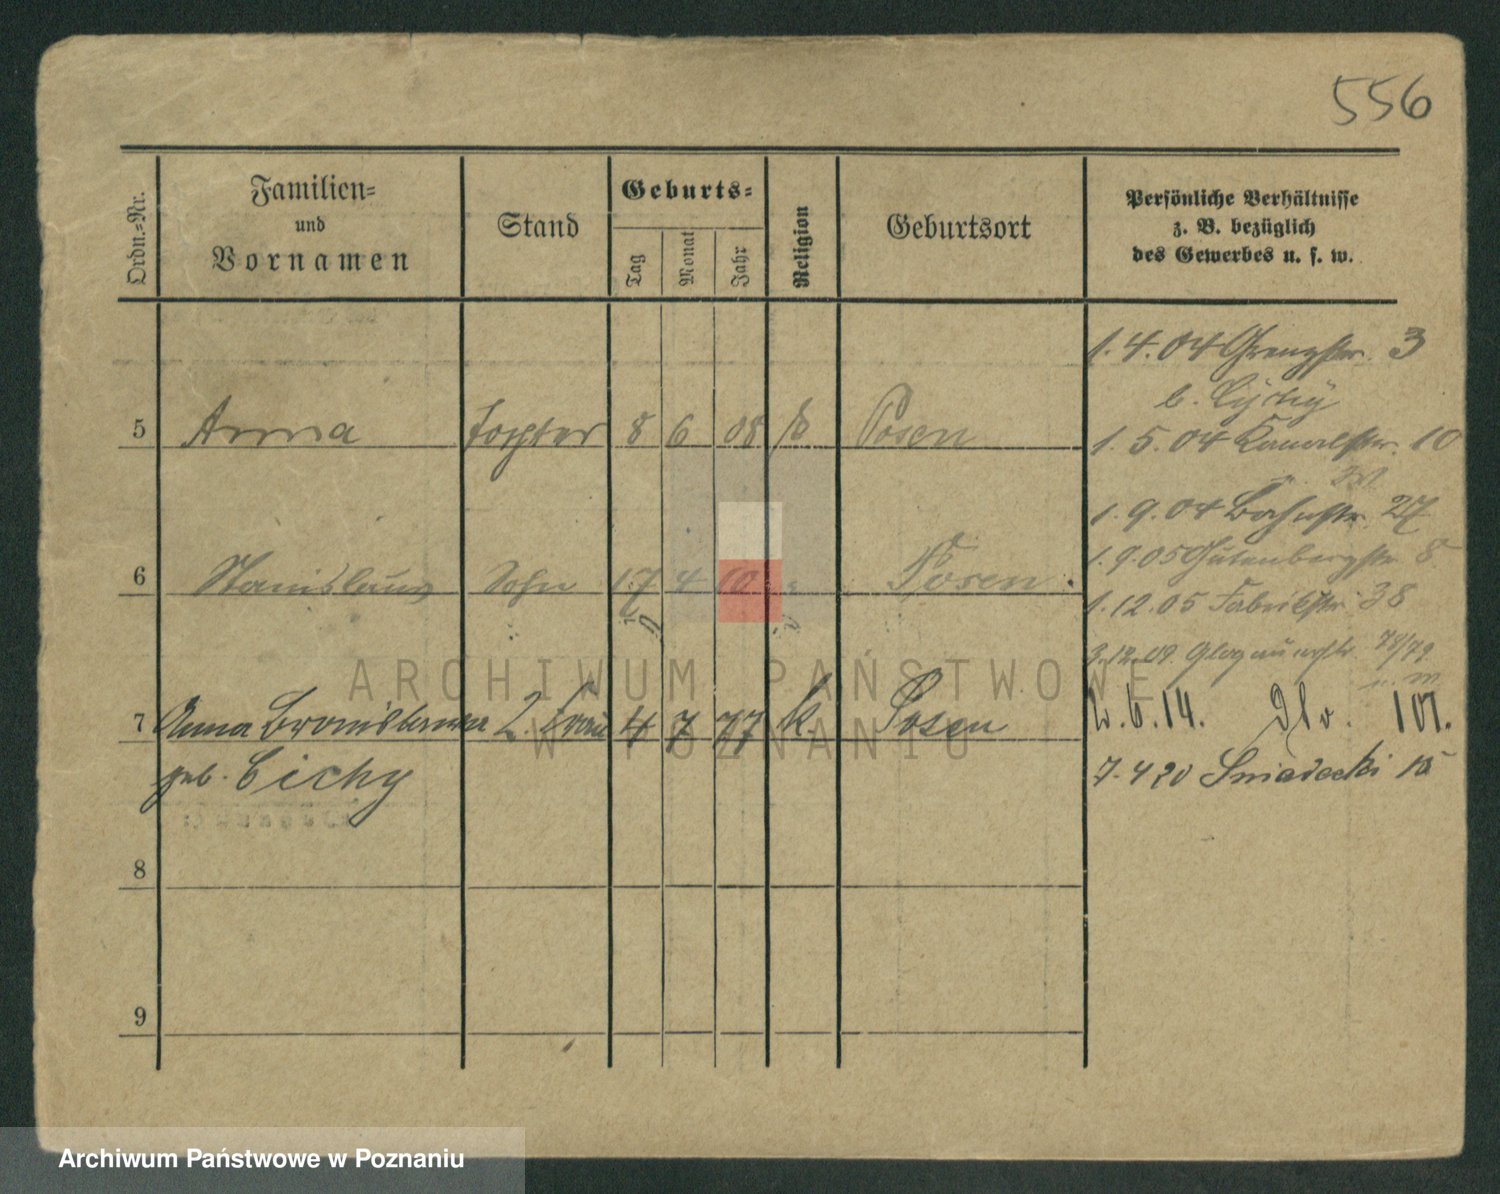 556
Ordn.-Nr.
Familien-
und
Vornamen
Stand
Geburts-
Tag
Monat
Jahr
Religion
Geburtsort
Persönliche Verhältnisse
z. B. bezüglich
des Gewerbes u. s. w.
1. 4. 04 Grenzstr. 3
b. Cychy
5 Anna Tochter 8 6 08 k Posen
1. 5. 04 Kanalstr. 10
1. 9. 04 27
1. 9. 05 Gutenbergstr. 8
6 Stanislaus Sohn 17 4 10 Posen
1. 12. 05 Fabrikstr. 38
3. 12. 09. Glogauerstr. 78/79
7 Anna Bronislawa 2. Frau 4 7 77 k. Posen
2. 6. 14. Dto. 101.
geb. Cichy
7. 4 20 Sniadecki 15
8
9
ARCHIWUM PAŃSTWOWE
W POZNANIU
Archiwum Państwowe w Poznaniu